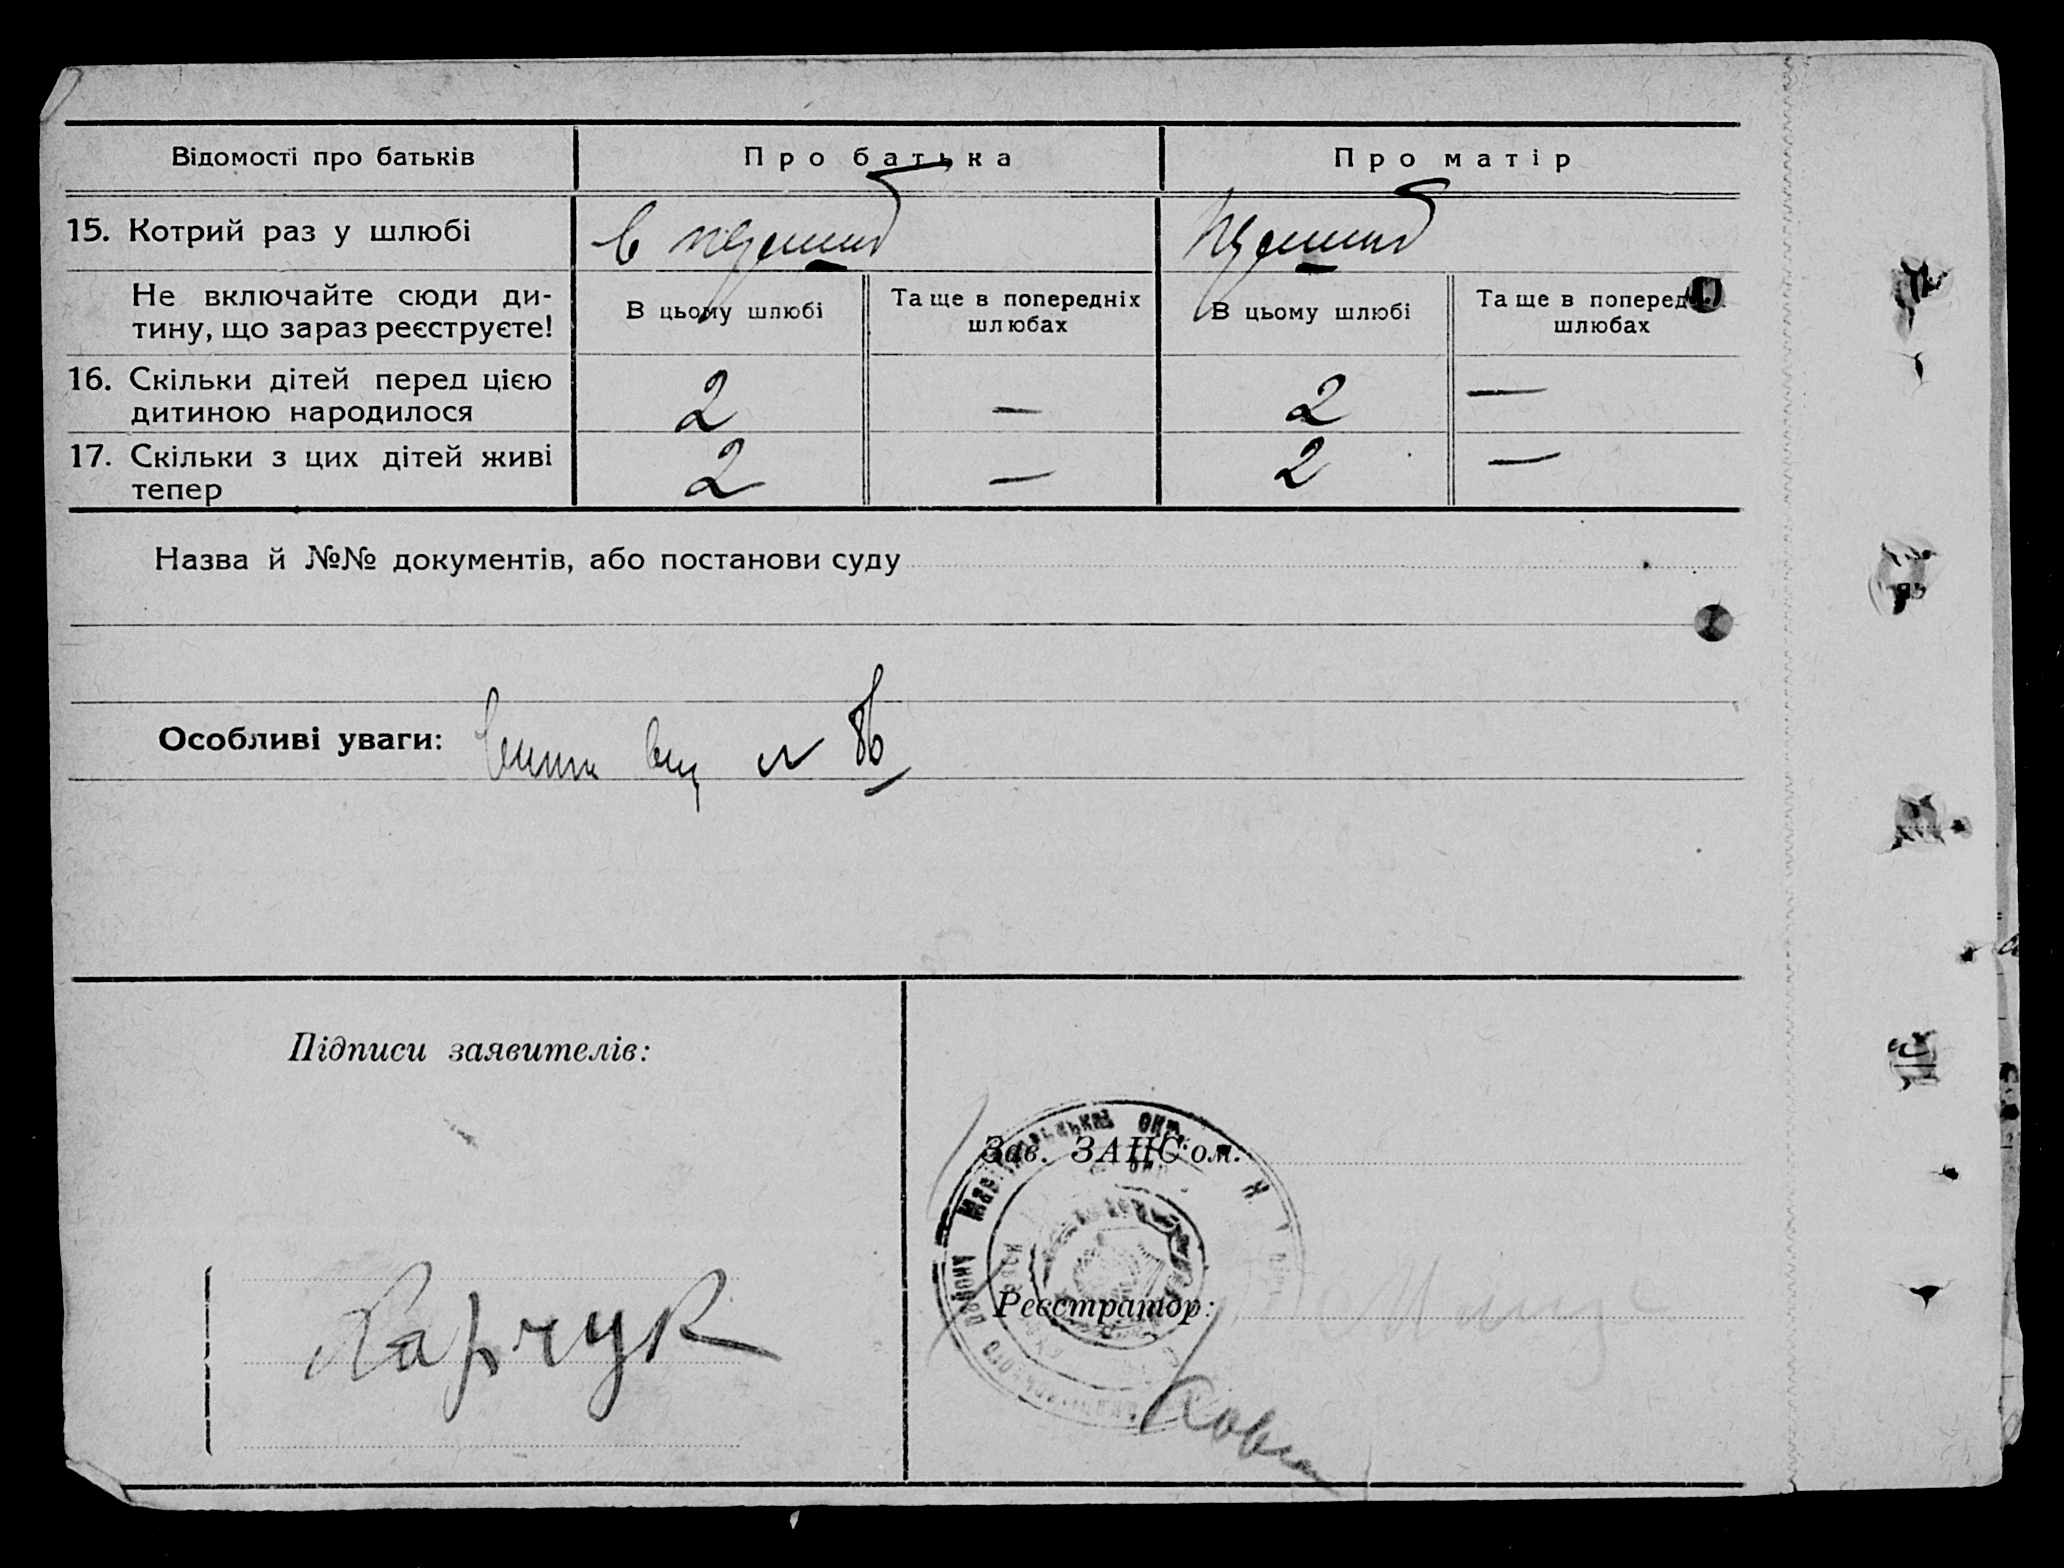 Відомості про батьків
Про батька
Про матір
15. Котрий раз у шлюбі
в перший
перший
Не включайте сюди ди-
тину, що зараз реєструєте!
В цьому шлюбі
Та ще в попередніх
шлюбах
В цьому шлюбі
Та ще в поперед
шлюбах
16. Скільки дітей перед цією
дитиною народилося
2
—
2
—
17. Скільки з цих дітей живі
тепер
2
—
2
—
Назва й №№ документів, або постанови суду
Особливі уваги:
№ 86
Підписи заявителів:
Зав. ЗАПС'ом:
Реєстратор:
Харчук